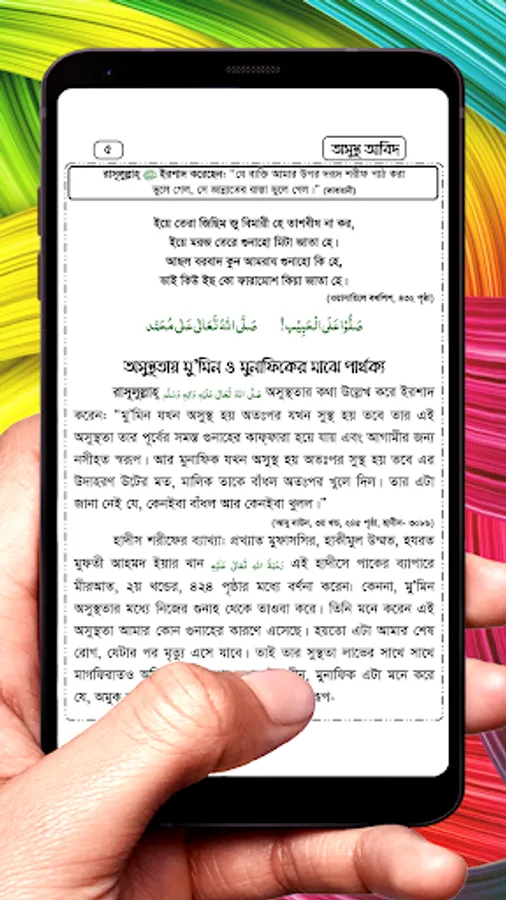 ৫
অসুস্থ আবিদ
রাসুলুল্লাহ্ ﷺ ইরশাদ করেছেন: “যে ব্যক্তি আমার উপর দরূদ শরীফ পাঠ করা
ভুলে গেল, সে জান্নাতের রাস্তা ভুলে গেল।” (তাবারানী)
ইয়ে তেরা জিছিম জু বিমারী হে তাশবীষ না কর,
ইয়ে মরজ তেরে গুনাহো মিটা জাতা হে।
আছল বরবাদ কুন আমরায গুনাহো কি হে,
ভাই কিউ ইছ কো ফারামোশ কিয়া জাতা হে।
(ওয়াসায়িলে বখশিশ, ৪৩২ পৃষ্ঠা)
صَلُّوْا عَلَی الْحَبِیْب! صَلَّی اللهُ تَعَالٰی عَلٰی مُحَمَّد
অসুস্থতায় মু’মিন ও মুনাফিকের মাঝে পার্থক্য
রাসুলুল্লাহ্ صَلَّى اللهُ تَعَالٰى عَلَيْهِ وَاٰلِهٖ وَسَلَّم অসুস্থতার কথা উল্লেখ করে ইরশাদ
করেন: “মু’মিন যখন অসুস্থ হয় অতঃপর যখন সুস্থ হয় তবে তার এই
অসুস্থতা তার পূর্বের সমস্ত গুনাহের কাফ্ফারা হয়ে যায় এবং আগামীর জন্য
নসীহত স্বরূপ। আর মুনাফিক যখন অসুস্থ হয় অতঃপর সুস্থ হয় তবে এর
উদাহরণ উটের মত, মালিক তাকে বাঁধল অতঃপর খুলে দিল। তার এটা
জানা নেই যে, কেনইবা বাঁধল আর কেনইবা খুলল।”
(আবু দাউদ, ৩য় খন্ড, ২৪৫ পৃষ্ঠা, হাদীস- ৩০৮৯)
হাদীস শরীফের ব্যাখ্যা: প্রখ্যাত মুফাসসির, হাকীমুল উম্মত, হযরত
মুফতী আহমদ ইয়ার খান رَحْمَةُ اللهِ تَعَالٰى عَلَيْهِ এই হাদীসে পাকের ব্যাপারে
মীরআত, ২য় খন্ডের, ৪২৪ পৃষ্ঠার মধ্যে বর্ণনা করেন। কেননা, মু’মিন
অসুস্থতার মধ্যে নিজের গুনাহ থেকে তাওবা করে। তিনি মনে করেন এই
অসুস্থতা আমার কোন গুনাহের কারণে এসেছে। হয়তো এটা আমার শেষ
রোগ, যেটার পর মৃত্যু এসে যাবে। তাই তার সুস্থতা লাভের সাথে সাথে
মাগফিরাতও মুনাফিক এটা মনে করে
যে, অমুক